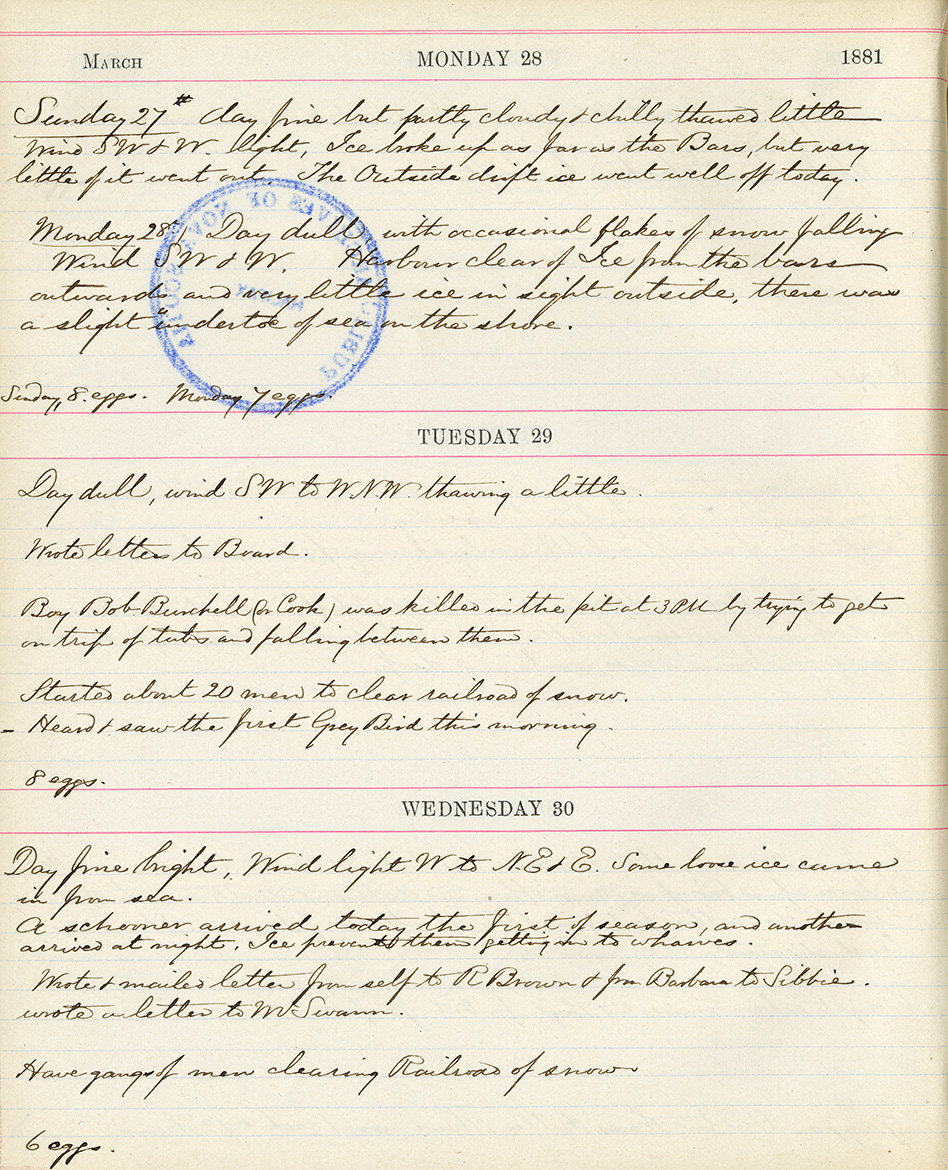 March MONDAY 28 1881
Sunday 27th day fine but partly cloudy & chilly thawed little
Wind SW & W. light, Ice broke up as far as the Bars, but very
little of it went out. The Outside drift ice went well off today.
Monday 28th Day dull, with occasional flakes of snow falling
Wind SW & W. Harbour clear of Ice from the bars
outwards and very little ice in sight outside, there was
a slight "undertoe of sea on the shore.
Sunday, 8. eggs. Monday 7 eggs.
PUBLIC ARCHIVES OF NOVA SCOTIA
TUESDAY 29
Day dull, wind SW to WNW. thawing a little.
Wrote letters to Board.
Boy Bob Burchell (or Cook) was killed in the pit at 3 PM by trying to get
on trip of tubs and falling between them.
Started about 20 men to clear railroad of snow.
- Heard & saw the first Grey Bird this morning.
8 eggs.
WEDNESDAY 30
Day fine bright, Wind light W to N.E & E. Some loose ice came
in from sea.
A schooner arrived today the first of season, and another
arrived at night. Ice prevents them getting in to wharves.
Wrote & mailed letter from self to R Brown & from Barbara to Sibbie.
wrote a letter to Mr Swann.
Have gangs of men clearing Railroad of snow
6 eggs.